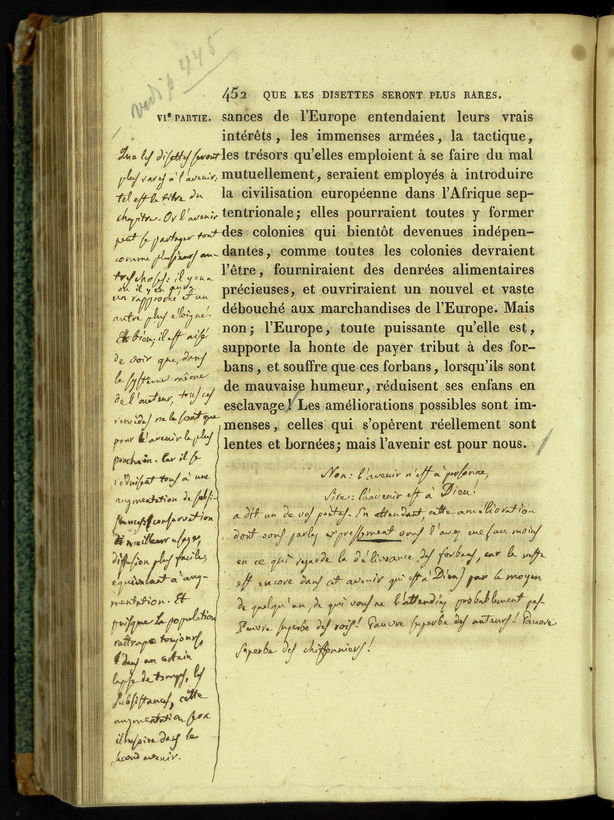 vedi p. 448
452 QUE LES DISETTES SERONT PLUS RARES.
VIe PARTIE.
sances de l'Europe entendaient leurs vrais
intérêts, les immenses armées, la tactique,
les trésors qu'elles emploient à se faire du mal
mutuellement, seraient employés à introduire
la civilisation européenne dans l'Afrique sep-
tentrionale; elles pourraient toutes y former
des colonies qui bientôt devenues indépen-
dantes, comme toutes les colonies devraient
l'être, fourniraient des denrées alimentaires
précieuses, et ouvriraient un nouvel et vaste
débouché aux marchandises de l'Europe. Mais
non; l'Europe, toute puissante qu'elle est,
supporte la honte de payer tribut à des for-
bans, et souffre que ces forbans, lorsqu'ils sont
de mauvaise humeur, réduisent ses enfans en
esclavage! Les améliorations possibles sont im-
menses, celles qui s'opèrent réellement sont
lentes et bornées; mais l'avenir est pour nous.
Que les disettes seront
plus rares à l'avenir.
tel est le titre du
chapitre. Or l'avenir
peut se partager tout
comme plusieurs au-
tres choses: il y en a
ou il y en aura
un rapproché et un
autre plus éloigné.
Eh bien, il est aisé
de voir que, dans
le systeme même
de l'auteur, tous ces
remèdes ne le sont que
pour l'avenir le plus
prochain. Car il se
réduisent tous à une
augmentation de subsi-
stances; conservation
meilleur usage,
diffusion plus facile,
equivalant à aug-
mentation. Et
puisque la population
rattrape toujours,
dans un certain
lapse de temps, les
subsistances, cette
augmentation sera
dans le
second avenir.
Non: l'avenir n'est à personne,
Sire: l'avenir est à Dieu:
a dit un de vos poetes. En attendant cette amélioration
dont vous parlez expressément vous l'avez eue au moins
en ce qui regarde la délivrance des forbans, car le reste
est encore dans cet avenir qui est à Dieu, par le moyen
de quelqu'un, de qui vous ne l'attendiez probablement pas.
Pauvre superbe des rois! Pauvre superbe des auteurs! Pauvre
superbe des chiffonniers!